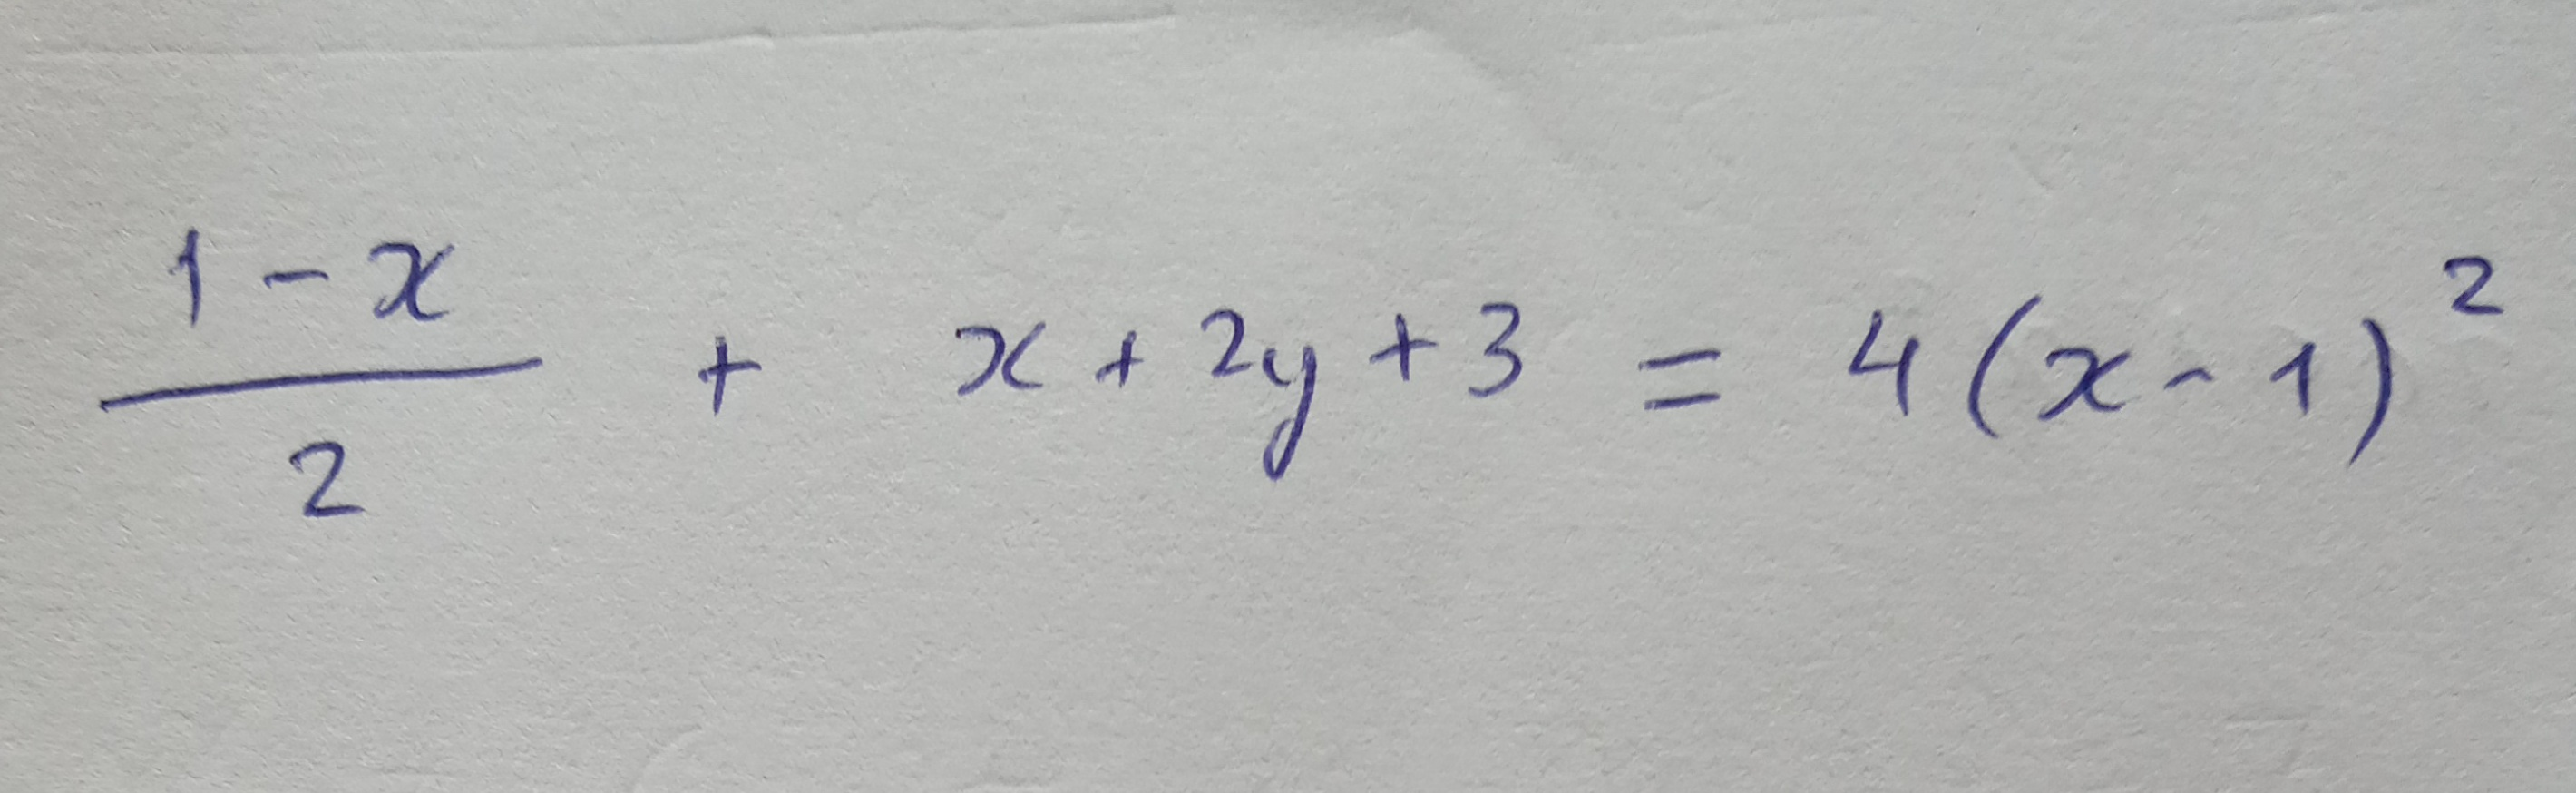 \frac{1-x}{2} + x+2y+3 = 4(x-1)^2